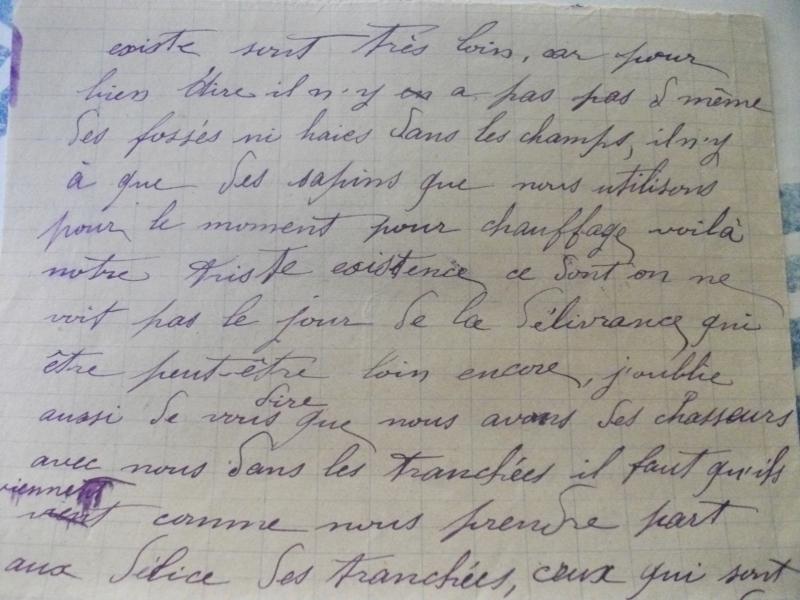 existe sont très loin, car pour
bien dire il n'y en a pas pas d même
des fossés ni haies dans les champs, il n'y
à que des sapins que nous utilisons
pour le moment pour chauffage voilà
notre triste existence, ce dont on ne
voit pas le jour de la délivrance, qui
être peut-être loin encore, j'oublie
aussi de vous dire que nous avons des chasseurs
avec nous dans les tranchées il faut qu'ils
viennent
vient comme nous prendre part
aux délice des tranchées, ceux qui sont